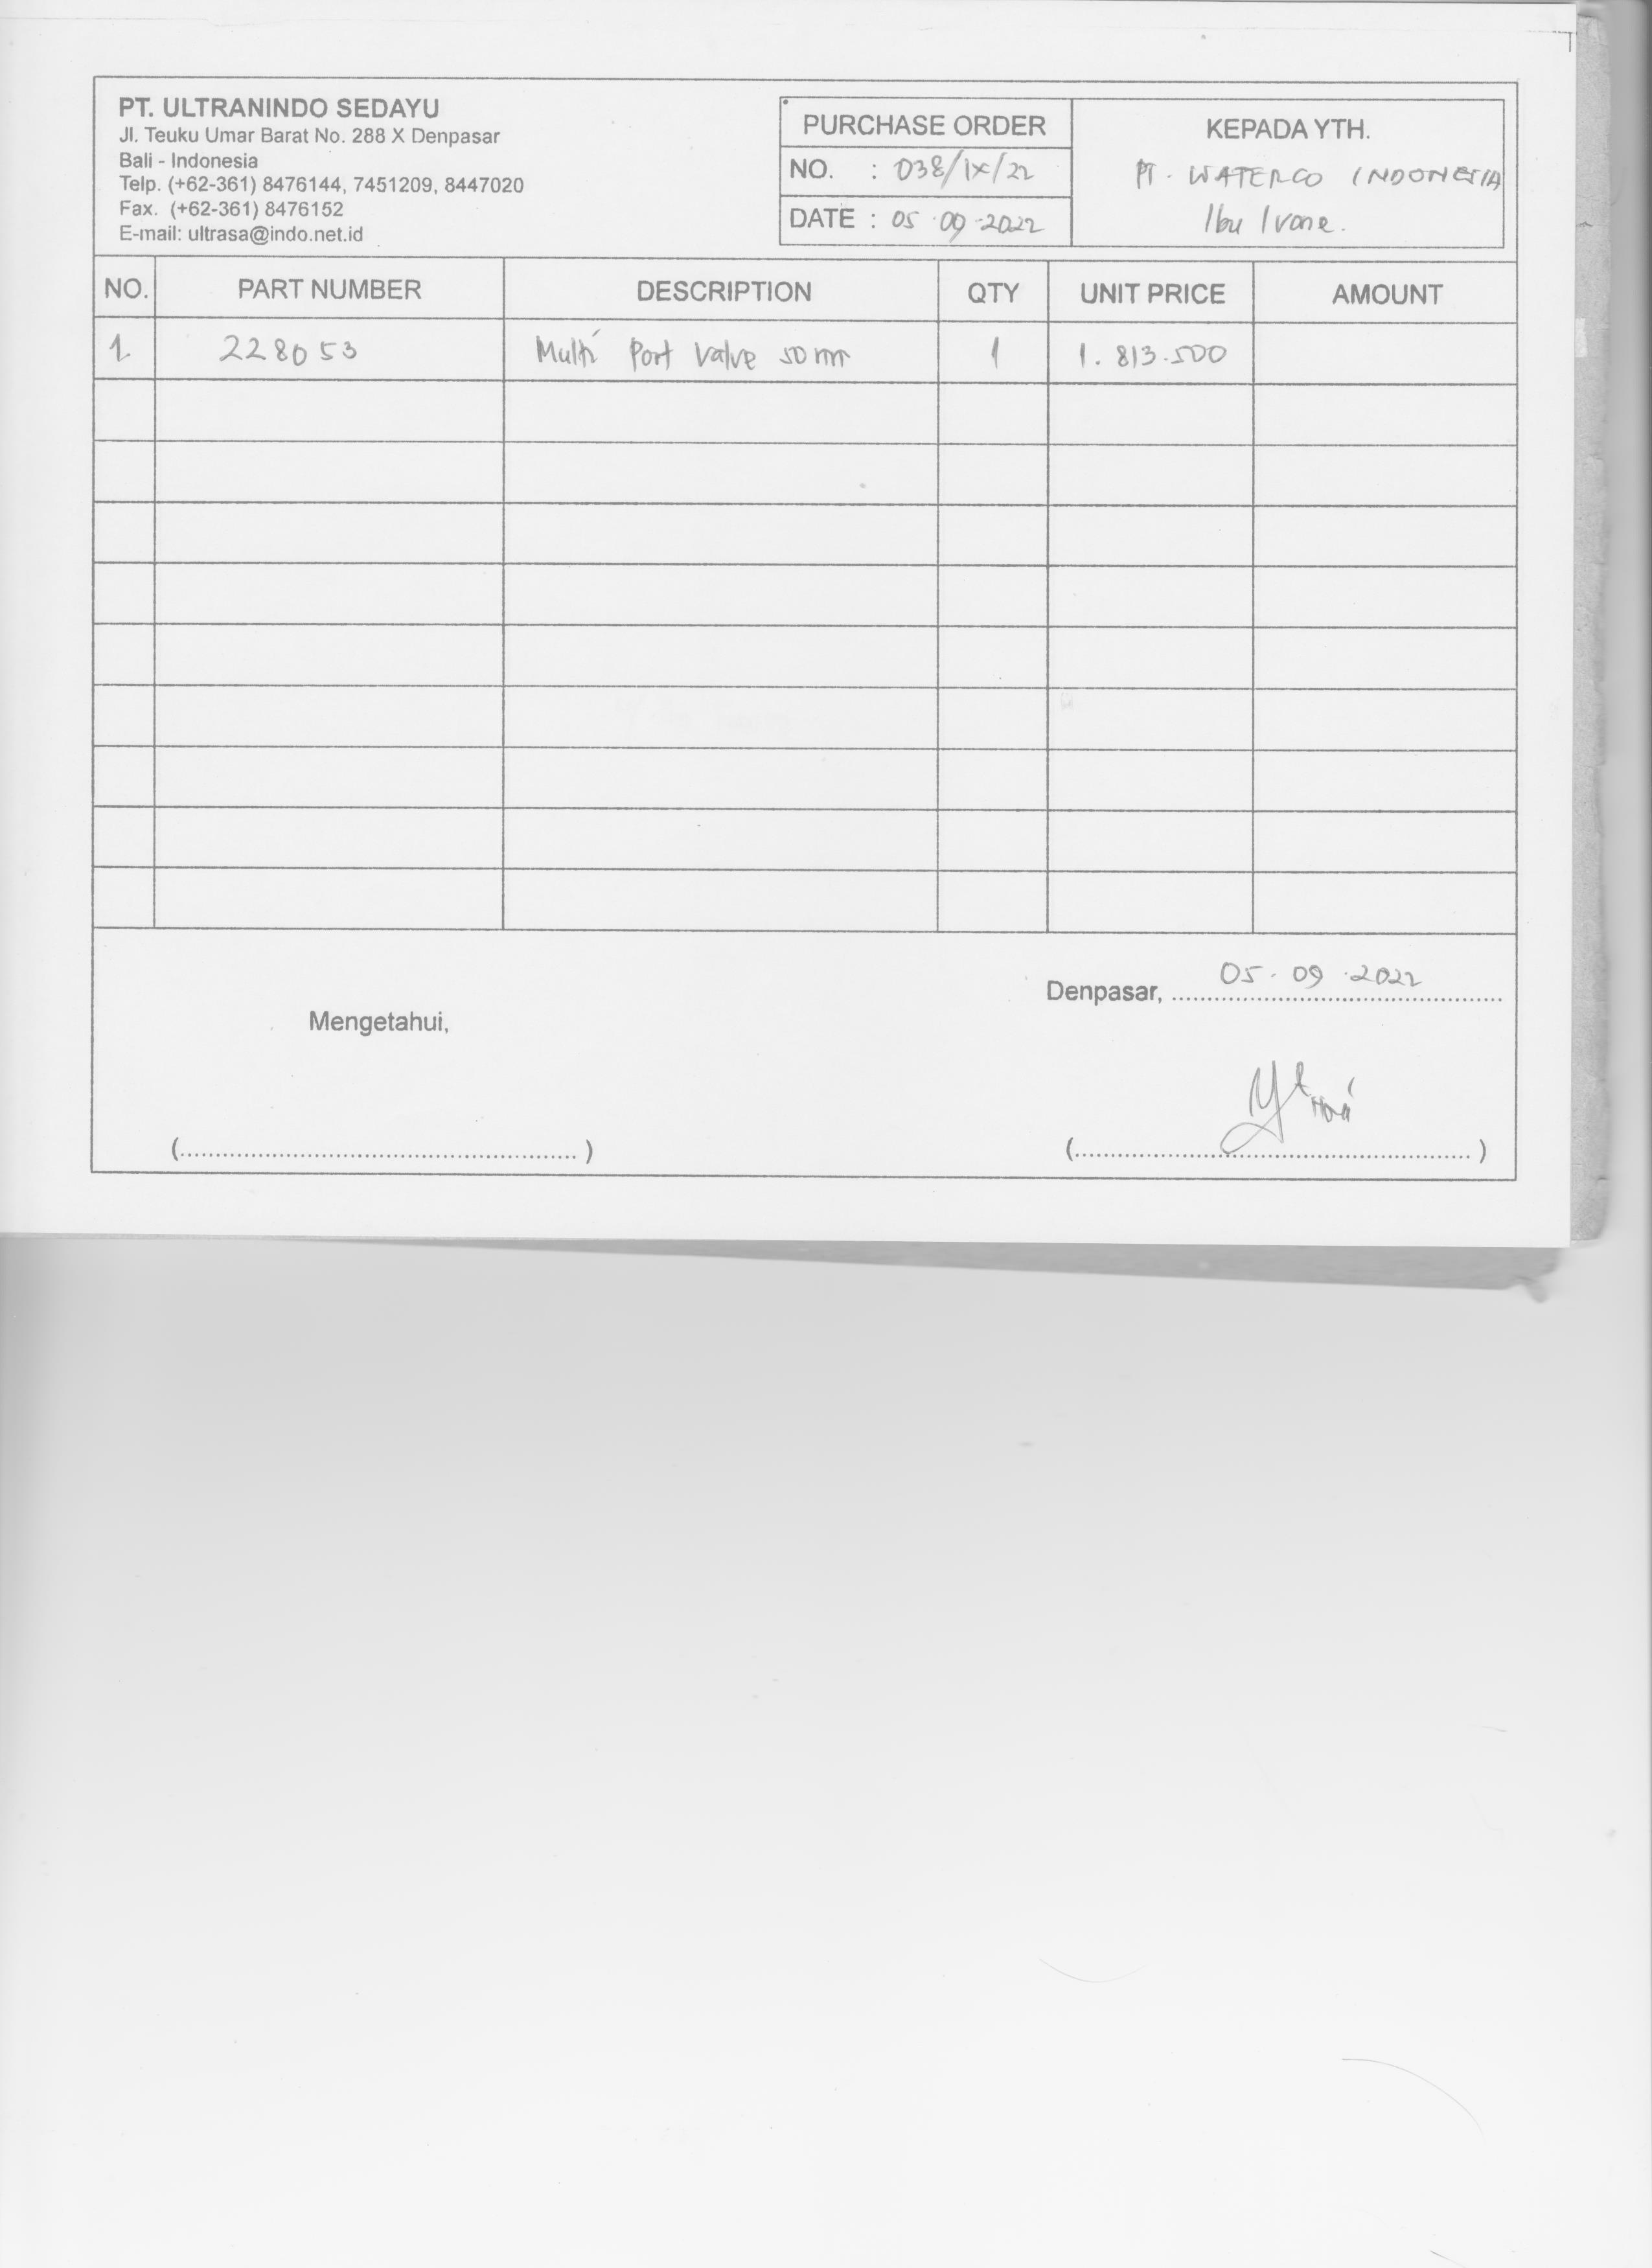 PT. ULTRANINDO SEDAYU
Jl. Teuku Umar Barat No. 288 X Denpasar
Bali - Indonesia
Telp. (+62-361) 8476144, 7451209, 8447020
Fax. (+62-361) 8476152
E-mail: ultrasa@indo.net.id
PURCHASE ORDER
NO. : 038/IX/22
DATE : 05-09-2022
KEPADA YTH.
PT. WATERCO INDONESIA
Ibu Ivone.
NO. PART NUMBER DESCRIPTION QTY UNIT PRICE AMOUNT
1. 228053 Multi Port Valve 50 mm 1 1.813.500
Denpasar, 05-09-2022
Mengetahui,
(..................................................) (..................................................)